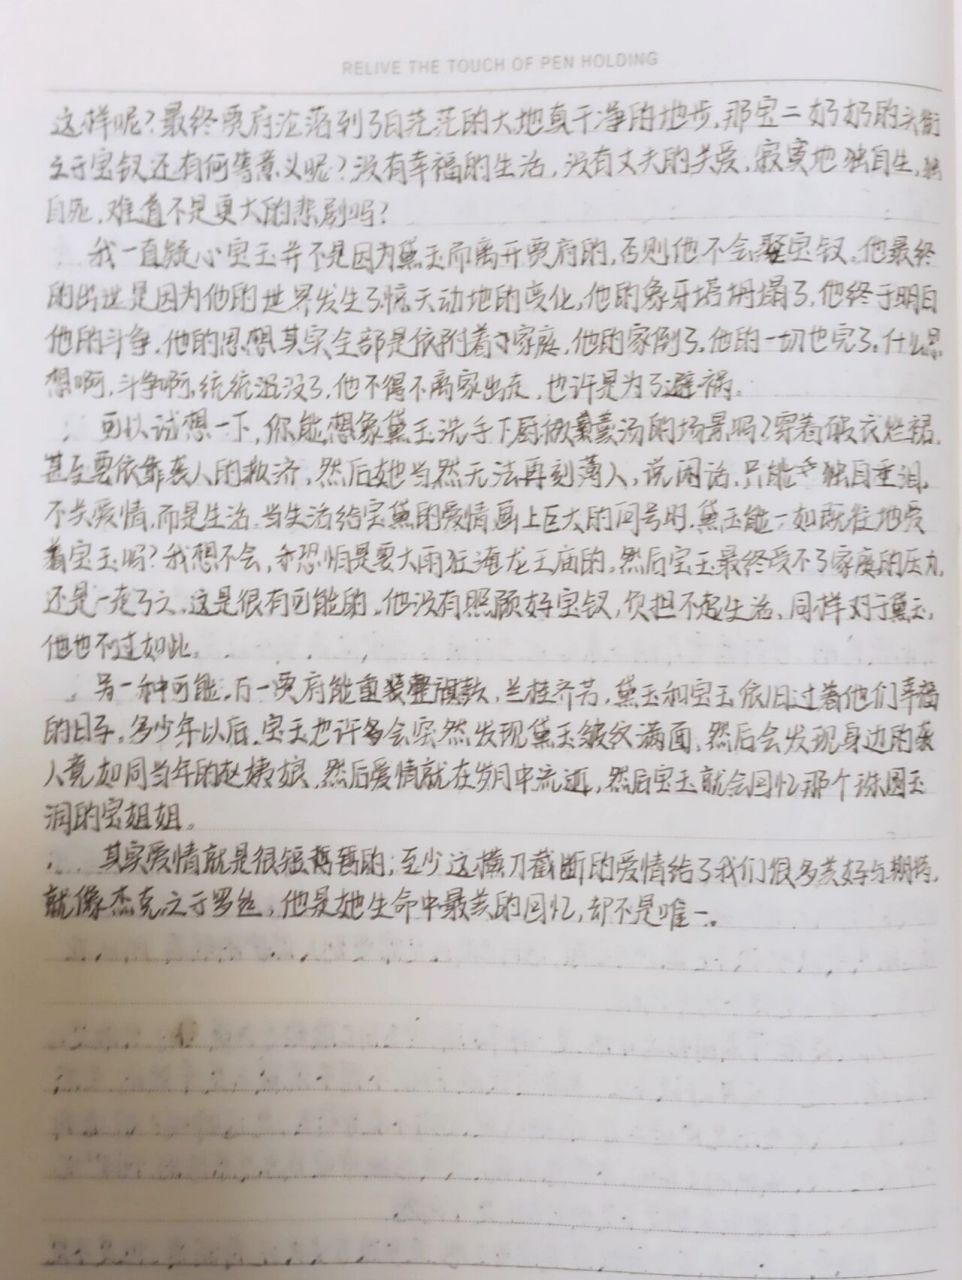 RELIVE THE TOUCH OF PEN HOLDING
这样呢?最终贾府沦落到了白茫茫的大地真干净的地步,那宝二奶奶的头衔
之于宝钗还有何等意义呢?没有幸福的生活,没有丈夫的关爱,寂寞地独自生,独
自死,难道不是更大的悲剧吗?
我一直疑心宝玉并不是因为黛玉而离开贾府的,否则他不会娶宝钗。他最终
的出世是因为他的世界发生了惊天动地的变化,他的象牙塔坍塌了,他终于明白
他的斗争,他的思想其实全部是依附着家庭,他的家倒了,他的一切也完了,什么思
想啊,斗争啊,统统湮没了,他不得不离家出走,也许是为了避祸。
可以试想一下,你能想象黛玉洗手下厨做羹汤的场景吗?穿着破衣烂裙,
甚至要依靠袭人的救济,然后她当然无法再刻薄人,说闲话,只能独自垂泪,
不关爱情,而是生活,当生活给宝黛的爱情画上巨大的问号时,黛玉能一如既往地爱
着宝玉吗?我想不会,恐怕是要大雨狂淹龙王庙的,然后宝玉最终受不了家庭的压力,
还是一走了之,这是很有可能的,他没有照顾好宝钗,负担不起生活,同样对于黛玉,
他也不过如此。
另一种可能,万一贾府能重整旗鼓,兰桂齐芳,黛玉和宝玉依旧过着他们幸福
的日子,多少年以后,宝玉也许多会突然发现黛玉皱纹满面,然后会发现身边的袭
人竟如同当年的赵姨娘,然后爱情就在岁月中流逝,然后宝玉就会回忆那个珠圆玉
润的宝姐姐。
其实爱情就是很短暂的,至少这横刀截断的爱情给了我们很多美好与期待,
就像杰克之于罗丝,他是她生命中最美的回忆,却不是唯一。